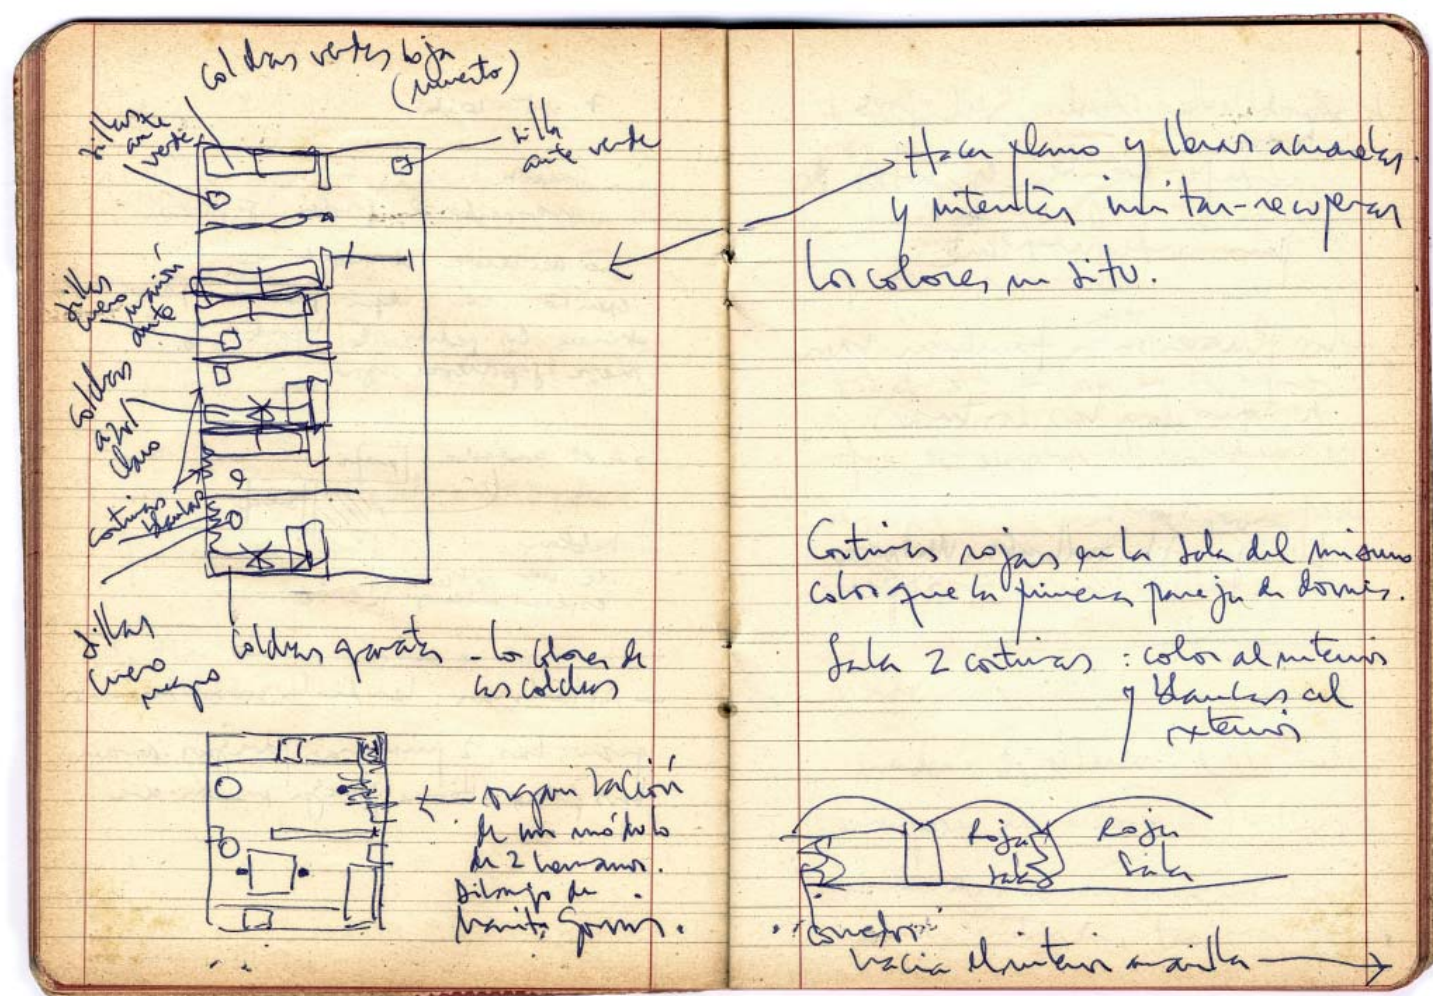 coldras verdes hoja
(muerto)
sillas
ante
verde
silla
ante verde
sillas
cuero marrón
ante
coldras
azul
claro
cortinas
blancas
sillas
cuero
negro
coldras granates - los colores de
las coldras
← organización
de un módulo
de 2 hermanos.
Dibujo de
Hacer plano y llevar acuarelas
y intentar imitar-recuperar
los colores in situ.
Cortinas rojas en la sala del mismo
color que la primera pareja de dormis.
Sala 2 cortinas : color al interior
y blancas al
exterior
Roja
sala
Roja
sala
corredor
hacia el interior amarilla →